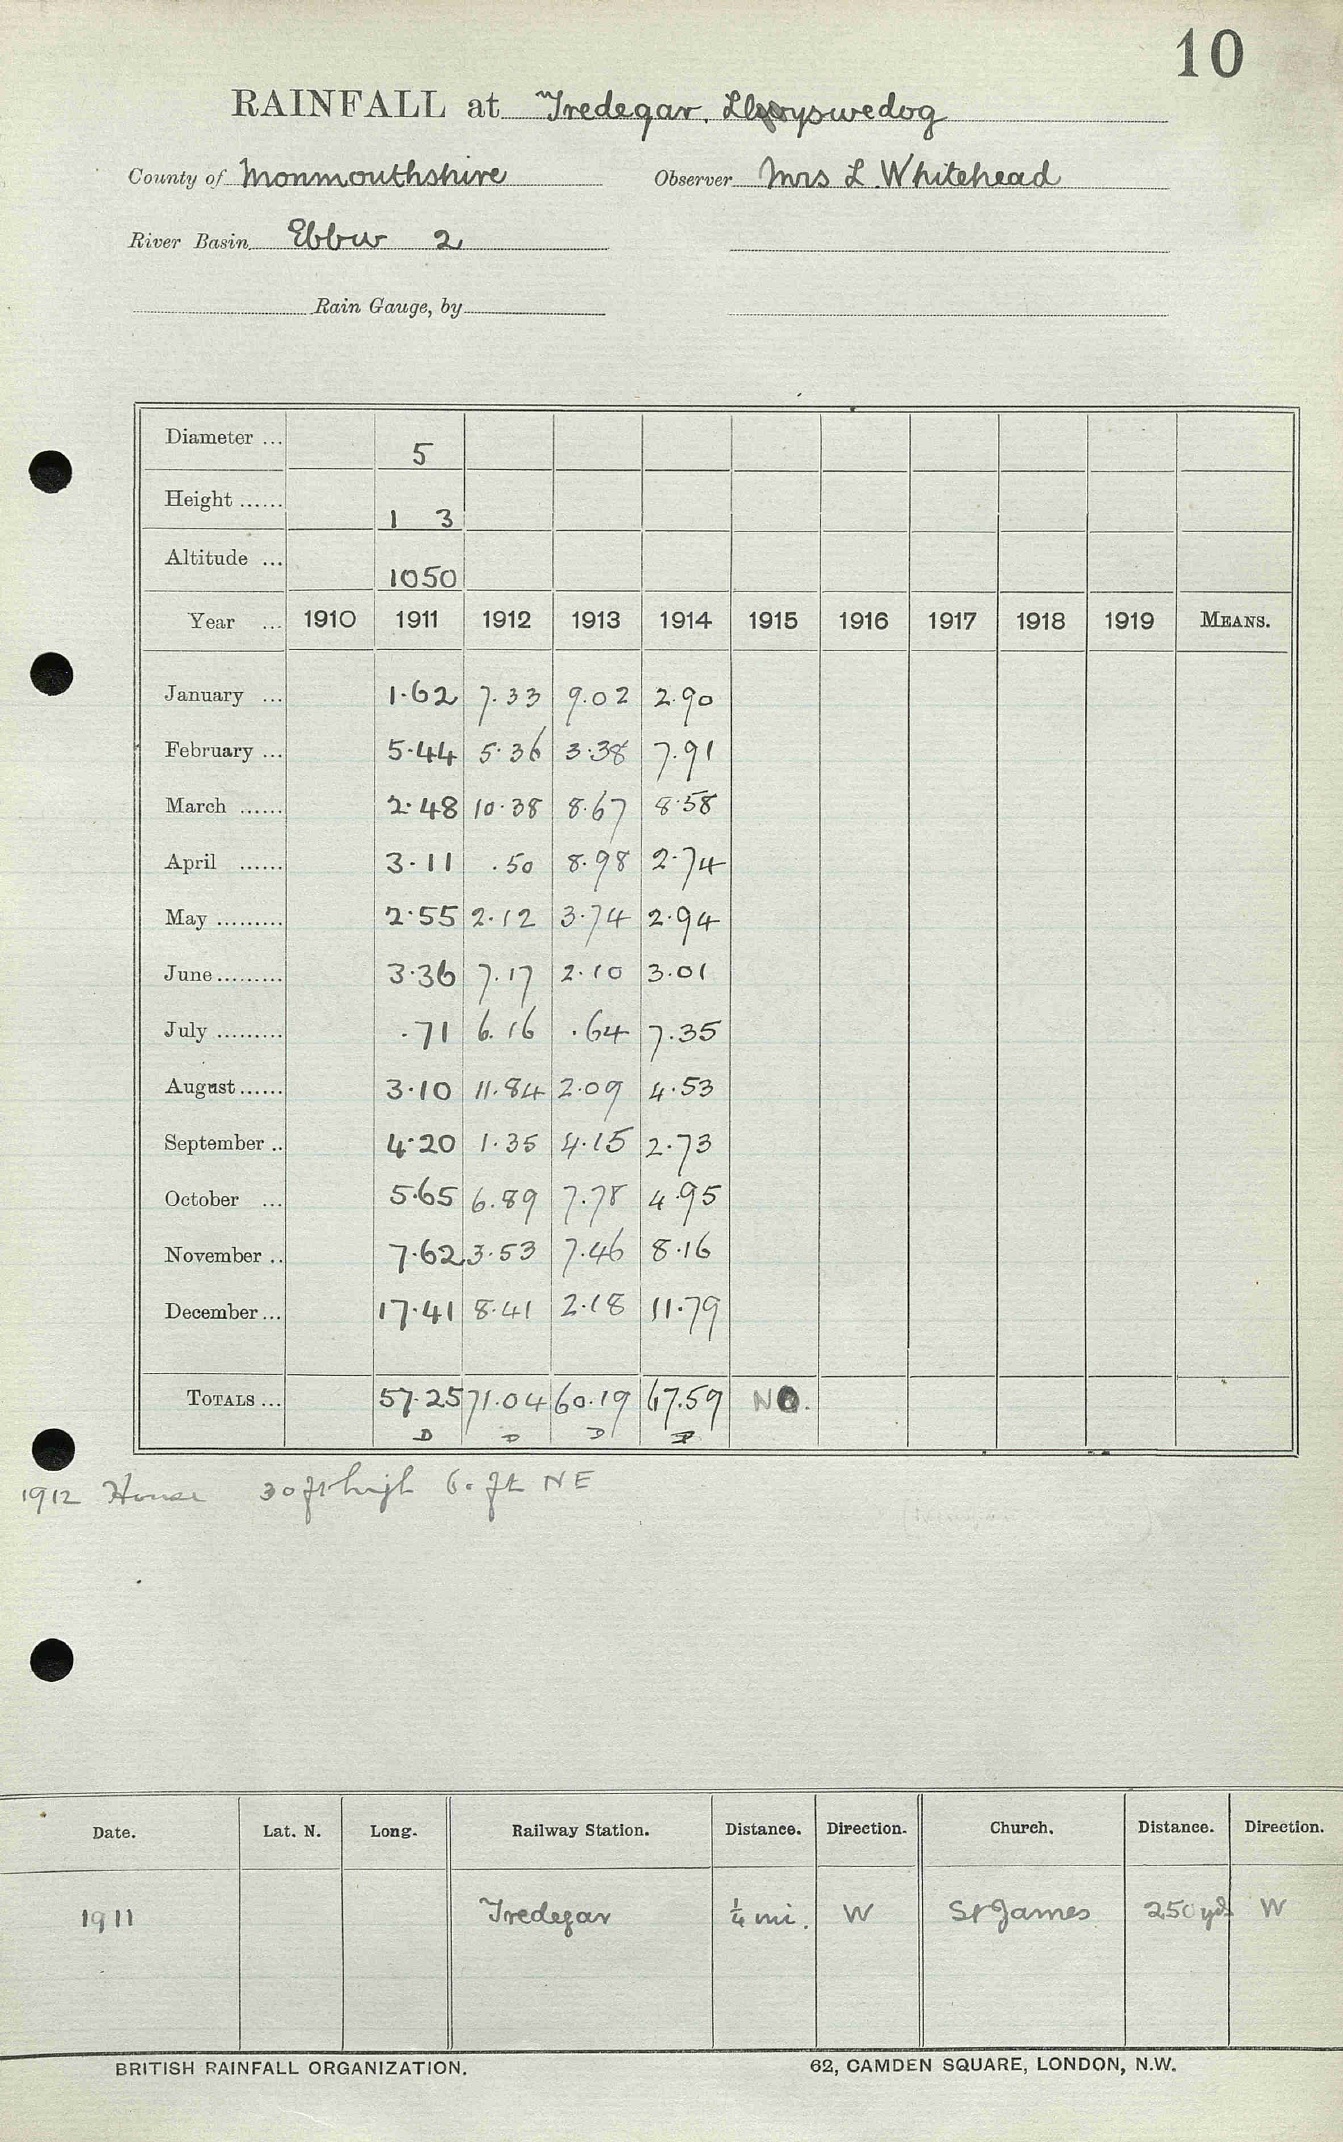 10
RAINFALL at Tredegar. Llwyswedog
County of Monmouthshire Observer Mrs L Whitehead
River Basin Ebbw 2
Rain Gauge, by
Diameter ... 5
Height ...... 1 3
Altitude ... 1050
Year ... 1910 1911 1912 1913 1914 1915 1916 1917 1918 1919 MEANS.
January ... 1.62 7.33 9.02 2.90
February ... 5.44 5.36 3.38 7.91
March ...... 2.48 10.38 8.67 8.58
April ...... 3.11 .50 8.98 2.74
May ......... 2.55 2.12 3.74 2.94
June ......... 3.36 7.17 2.10 3.01
July ......... .71 6.16 .64 7.35
August ...... 3.10 11.84 2.09 4.53
September .. 4.20 1.35 4.15 2.73
October ... 5.65 6.89 7.78 4.95
November .. 7.62 3.53 7.46 8.16
December ... 17.41 8.41 2.18 11.79
TOTALS ... 57.25 71.04 60.19 67.59 NO.
D D D D
1912 House 30 ft high 6. ft NE
Date. Lat. N. Long. Railway Station. Distance. Direction. Church. Distance. Direction.
1911 Tredegar ¼ mi. W St James 250 yds W
BRITISH RAINFALL ORGANIZATION. 62, CAMDEN SQUARE, LONDON, N.W.